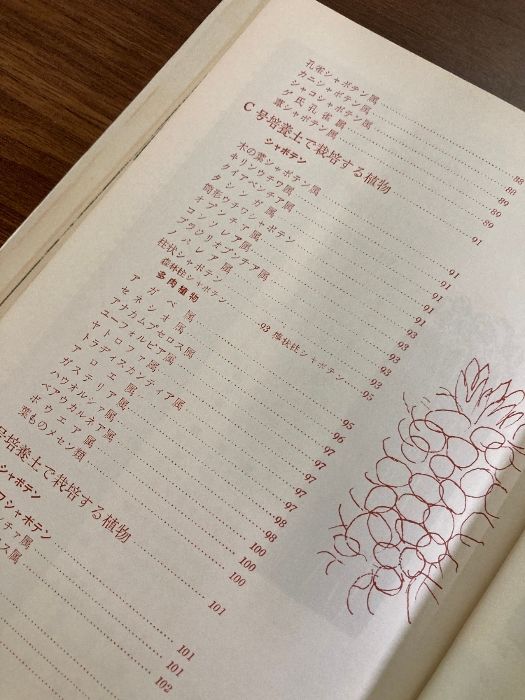 孔雀シャボテン属 88
カニシャボテン属 88
シャコシャボテン属 89
ゲ氏孔雀属 89
葉シャボテン属
C号培養土で栽培する植物 91
シャボテン
木の葉シャボテン属 91
キリンウチワ属 91
クイアベンチア属 91
タシンガ属 91
筒形ウチワシャボテン
オプンチア属 93
コンソレア属 93
ブラジリオプンチア属 93
ノパレア属 93
柱状シャボテン
森林柱シャボテン 93 塊状柱シャボテン 95
多肉植物
アガベ属 95
セネシオ属 96
アナカムプセロス属 97
ユーフォルビア属 97
ヤトロファ属 97
トラデスカンティア属 97
アロエ属 98
ガステリア属 98
ハウオルシァ属 100
ベアウカルネア属 100
ボウエア属 100
葉ものメセン類 101
号培養土で栽培する植物
シャボテン 101
シャボテン 101
ンチア属 102
ス属